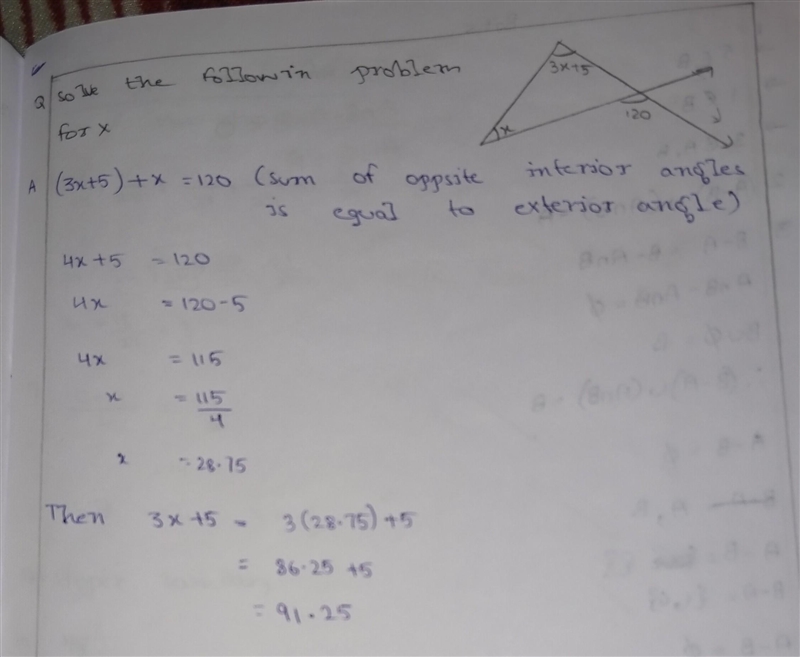 Q solve the followin problem
for x
3x+5
x
120
A (3x+5)+x = 120 (sum of oppsite interior angles
is equal to exterior angle)
4x+5 = 120
4x = 120-5
4x = 115
x = 115/4
x = 28.75
Then 3x+5 = 3(28.75)+5
= 86.25 +5
= 91.25